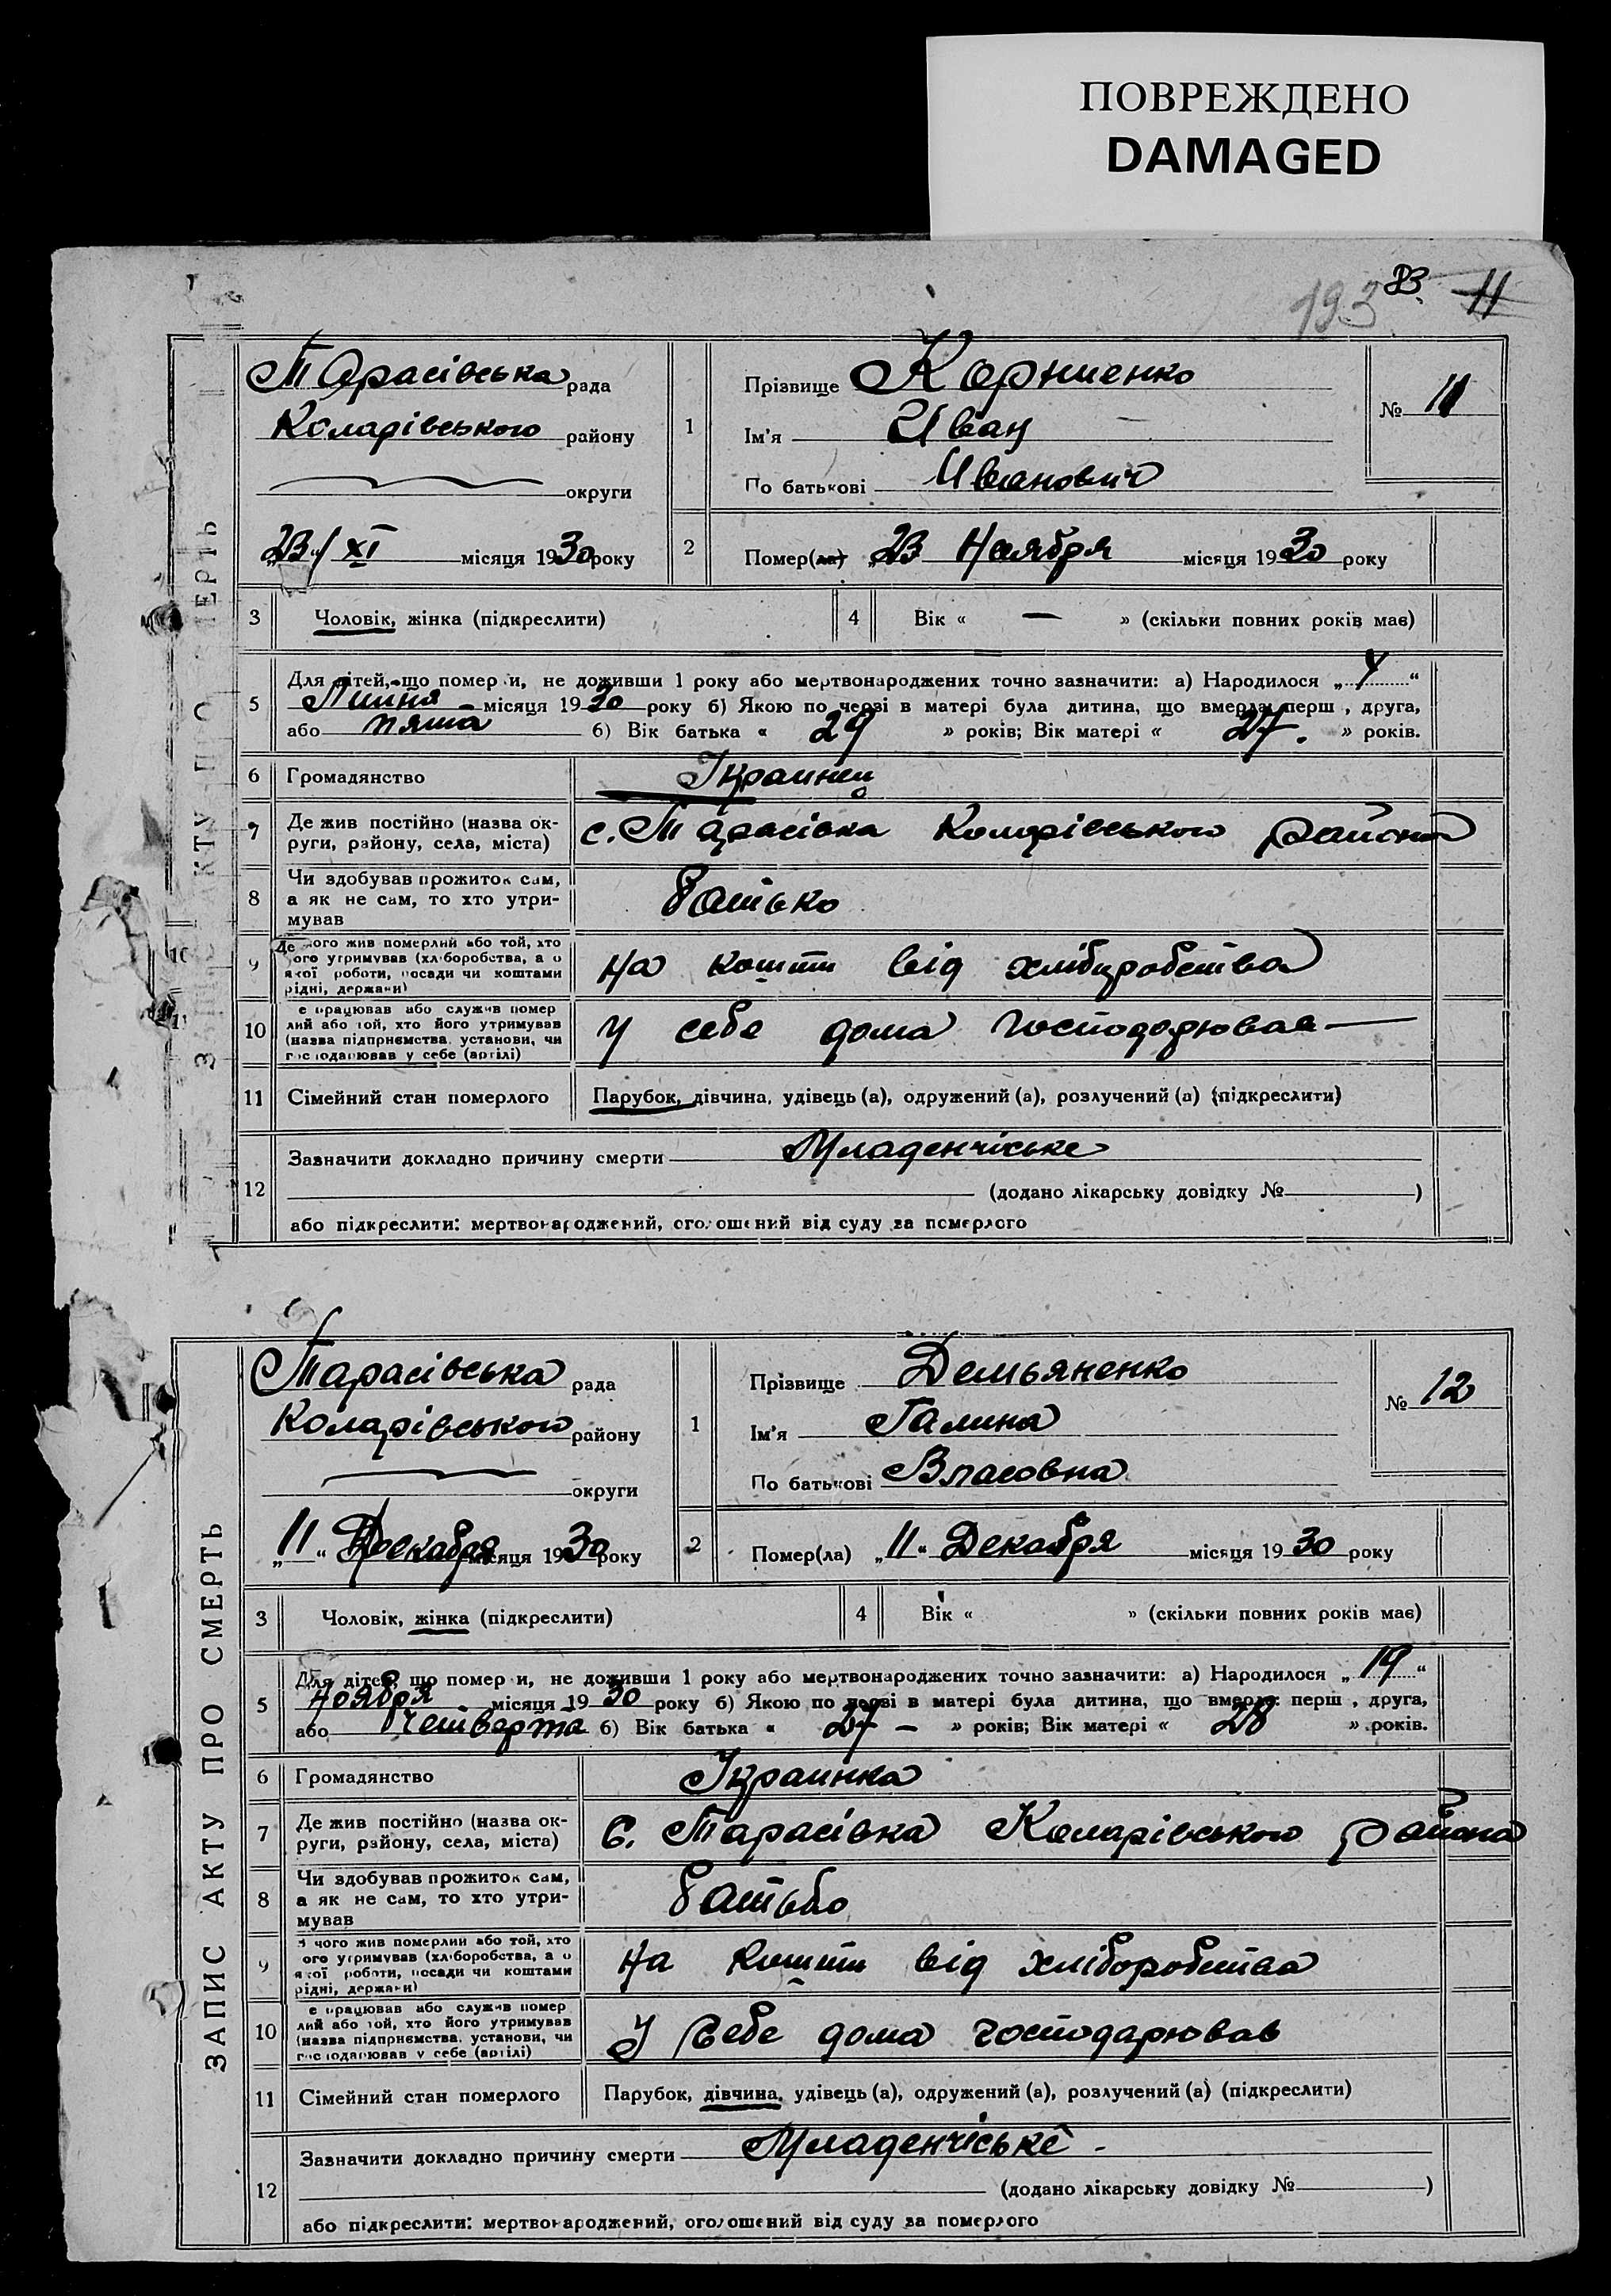 ПОВРЕЖДЕНО
DAMAGED
193 23. 11
ЗАПИС АКТУ ПРО СМЕРТЬ
Тарасівська рада
Коларівського району
округи
23/XI місяця 1930 року
1 Прізвище Корниенко
Ім'я Иван
По батькові Иванович
№ 11
2 Помер(ла) „23 Ноября місяця 1930 року
3 Чоловік, жінка (підкреслити)
4 Вік « — » (скільки повних років має)
5 Для дітей, що померли, не доживши 1 року або мертвонароджених точно зазначити: а) Народилося „ “
місяця 1930 року б) Якою по черзі в матері була дитина, що вмерла: перш , друга,
або пята б) Вік батька « 29 » років; Вік матері « 27. » років.
6 Громадянство Украинец
7 Де жив постійно (назва ок-
руги, району, села, міста) с. Тарасівка Коларівського района
8 Чи здобував прожиток сам,
а як не сам, то хто утри-
мував батько
9 Де чого жив померлий або той, хто
ого утримував (хліборобства, а о
якої роботи, посади чи коштами
рідні, держави) на кошти від хліборобства
10 е працював або служив помер
лий або той, хто його утримував
(назва підприємства, установи, чи
господарював у себе (артілі) у себе дома господорював —
11 Сімейний стан померлого Парубок, дівчина, удівець (а), одружений (а), розлучений (а) (підкреслити)
12 Зазначити докладно причину смерти Младенчіське
(додано лікарську довідку № )
або підкреслити: мертвонароджений, оголошений від суду за померлого
ЗАПИС АКТУ ПРО СМЕРТЬ
Тарасівська рада
Коларівського району
округи
„11“ Декабря місяця 1930 року
1 Прізвище Демьяненко
Ім'я Галина
По батькові Власовна
№ 12
2 Помер(ла) „11“ Декабря місяця 1930 року
3 Чоловік, жінка (підкреслити)
4 Вік « » (скільки повних років має)
5 Для дітей, що померли, не доживши 1 року або мертвонароджених точно зазначити: а) Народилося „19“
Ноября місяця 1930 року б) Якою по черзі в матері була дитина, що вмерла: перш , друга,
або Четверта б) Вік батька « 27 – » років; Вік матері « 28 » років.
6 Громадянство Украинка
7 Де жив постійно (назва ок-
руги, району, села, міста) С. Тарасівка Коларівського района
8 Чи здобував прожиток сам,
а як не сам, то хто утри-
мував батько
9 З чого жив померлий або той, хто
ого утримував (хліборобства, а о
якої роботи, посади чи коштами
рідні, держави) на кошти від хліборобства
10 е працював або служив помер
лий або той, хто його утримував
(назва підприємства, установи, чи
господарював у себе (артілі) У себе дома господарював
11 Сімейний стан померлого Парубок, дівчина, удівець (а), одружений (а), розлучений (а) (підкреслити)
12 Зазначити докладно причину смерти Младенчіське -
(додано лікарську довідку № )
або підкреслити: мертвонароджений, оголошений від суду за померлого